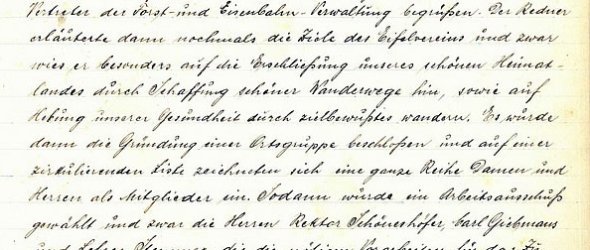 Vertreter der Forst- und Eisenbahn-Verwaltung begrüßen. Der Redner
erläuterte dann nochmals die Ziele des Eifelvereins und zwar
wies er besonders auf die Erschließung unseres schönen Heimat-
landes durch Schaffung schöner Wanderwege hin, sowie auf
Hebung unserer Gesundheit durch zielbewußtes wandern. Es wurde
dann die Gründung einer Ortsgruppe beschloßen und auf einer
zirkulierenden Liste zeichneten sich eine ganze Reihe Damen und
Herren als Mitglieder ein. Sodann wurde ein Arbeitsausschuß
gewählt und zwar die Herren Rektor Schöneshöfer, Carl Giebmans
und Lehrer die die nötigen Vorarbeiten für das